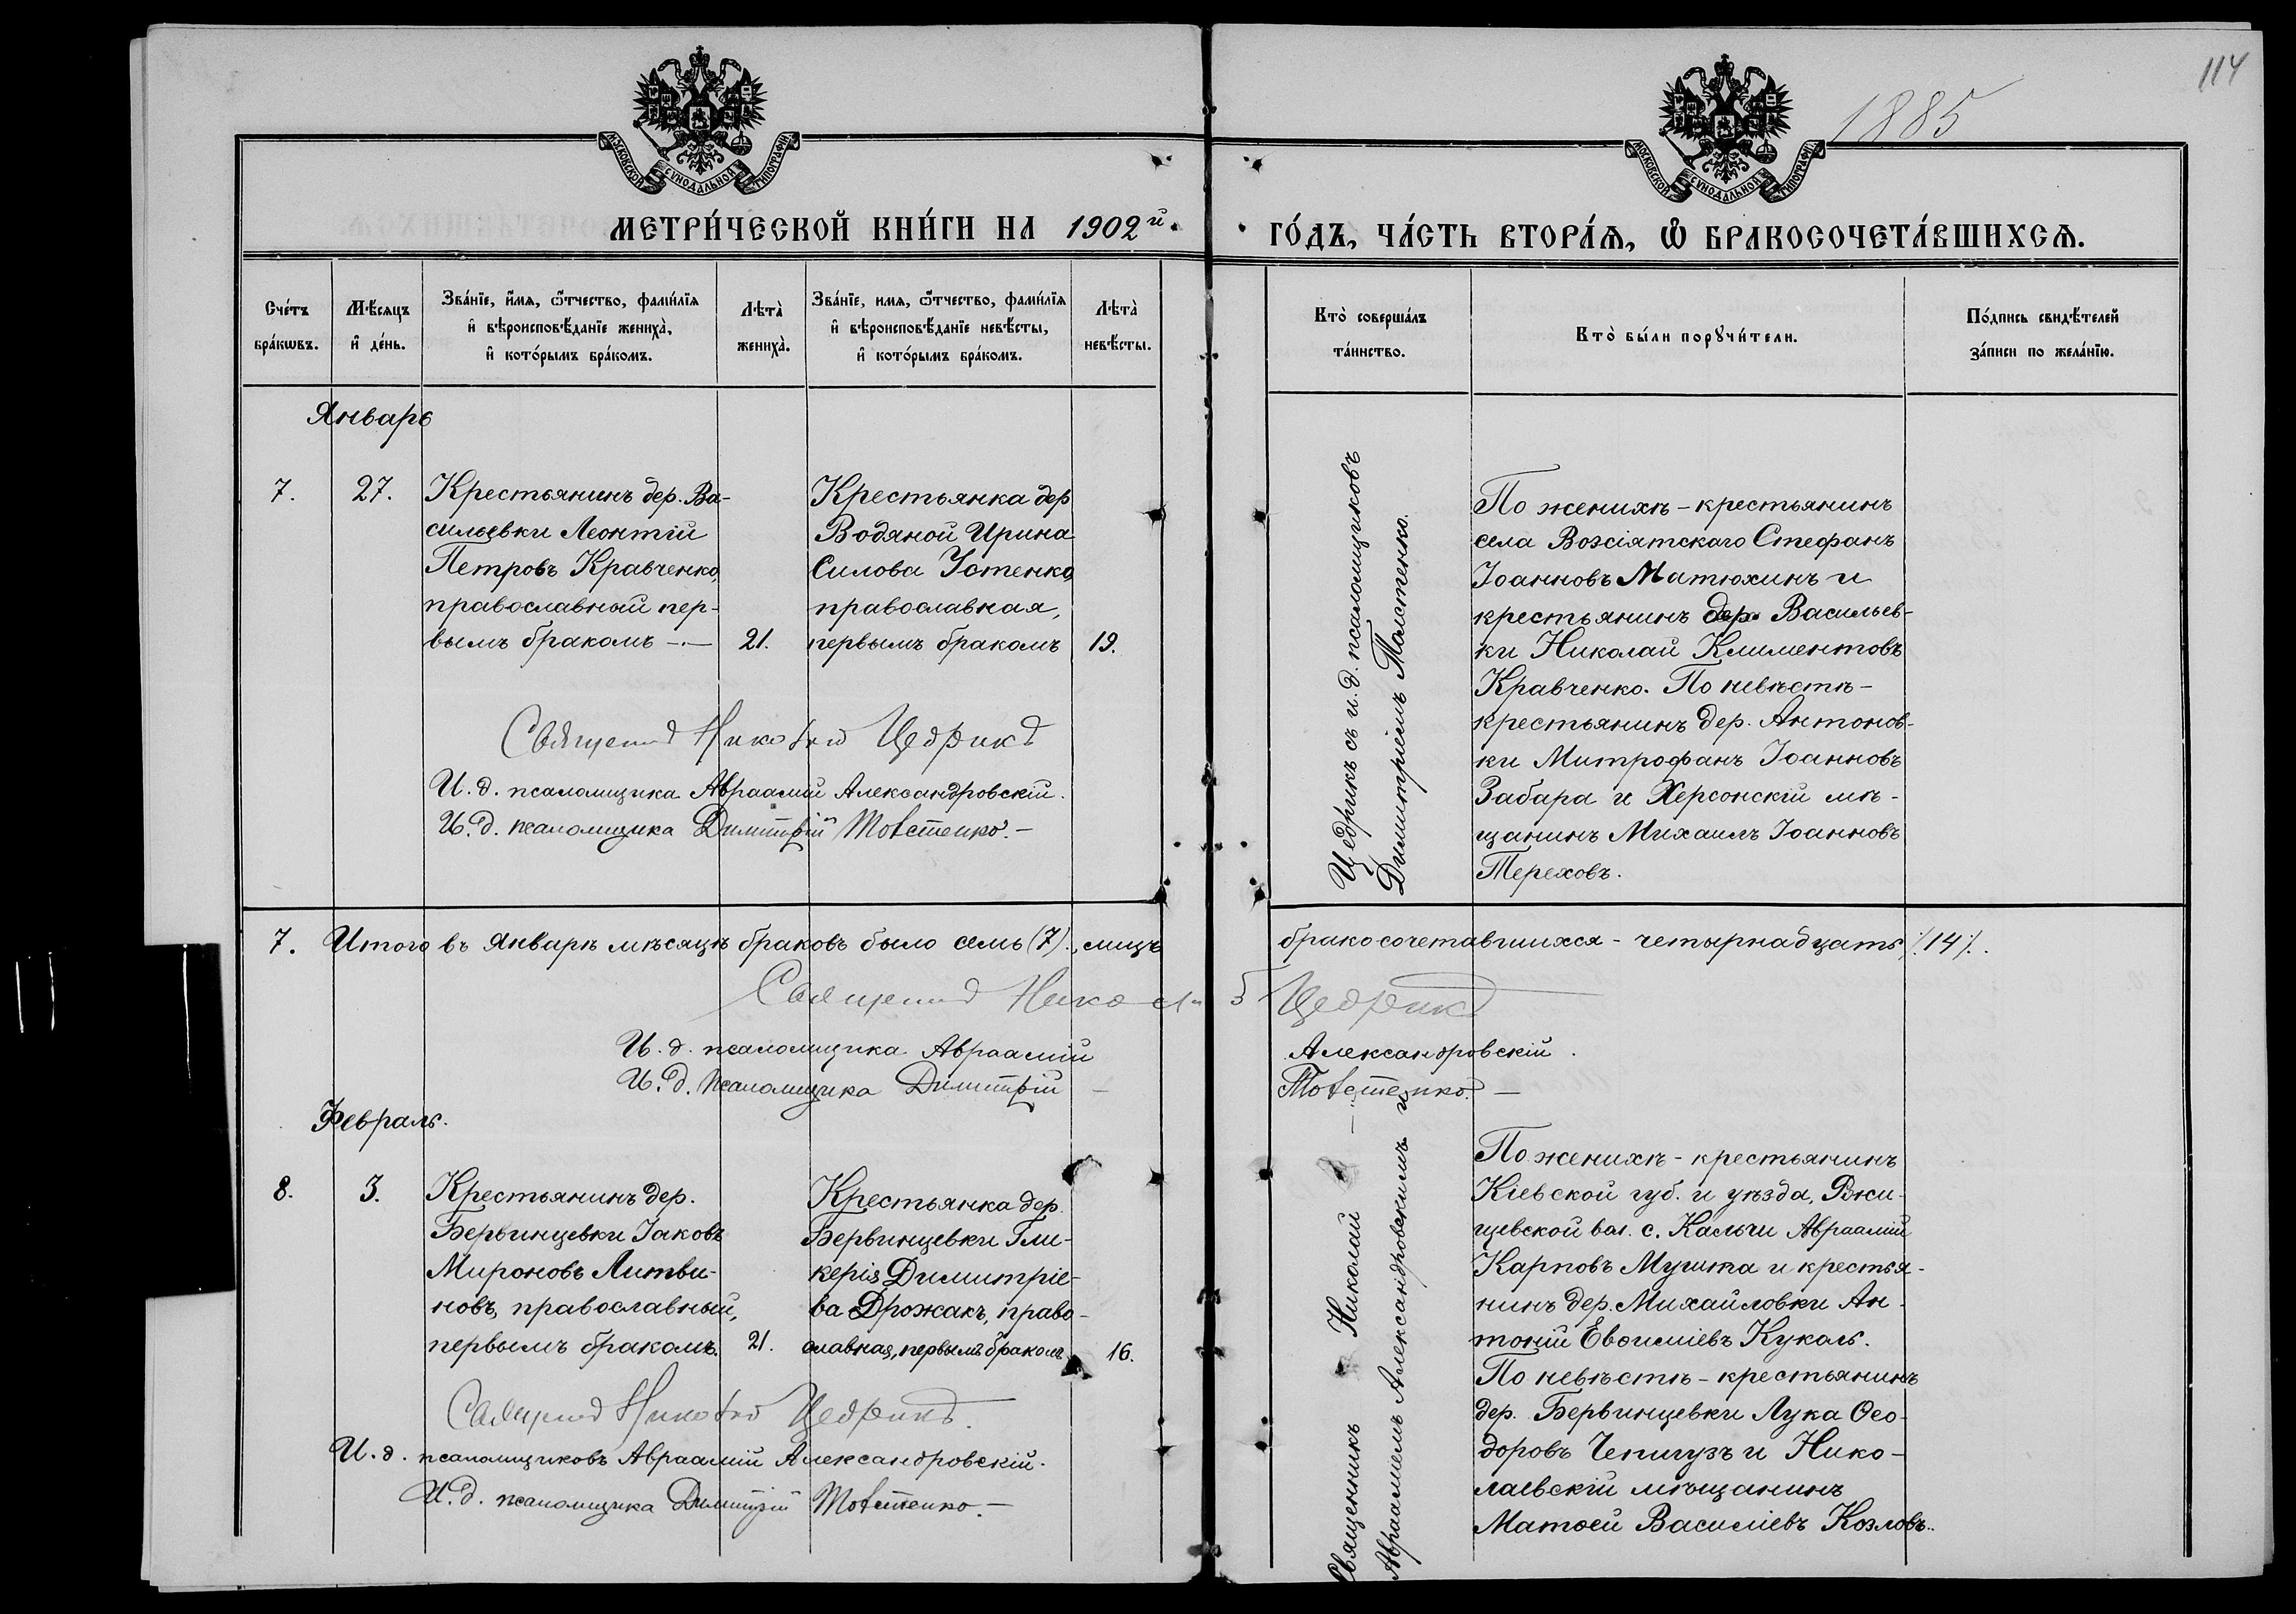 114
1885
МОСКОВСКОЙ СѴНОДАЛЬНОЙ ТИПОГРАФІИ
МОСКОВСКОЙ СѴНОДАЛЬНОЙ ТИПОГРАФІИ
МЕТРИ́ЧЕСКОЙ КНИ́ГИ НА 1902й.
ГО́ДЪ, ЧА́СТЬ ВТОРА́Ѧ, Ѽ БРАКОСОЧЕТА́ВШИХСѦ.
Сче́тъ
бра́кѡвъ.
Мѣ́сяцъ
и҆ де́нь.
Зва́нїе, и҆́мѧ, ѻ҆́тчество, фами́лїѧ
и҆ вѣроисповѣ́данїе жениха̀,
и҆ кото́рымъ бра́комъ.
Лѣта̀
жениха̀.
Зва́нїе, имѧ, ѻ҆́тчество, фами́лїѧ
и҆ вѣроисповѣ́данїе невѣ́сты,
и҆ кото́рымъ бра́комъ.
Лѣта̀
невѣ́сты.
Кто̀ соверша́лъ
та́инство.
Кто̀ бы́ли порꙋчи́тели.
По́дпись свидѣ́телей
за́писи по жела́нїю.
Январь
7.
27.
Крестьянинъ дер. Ва-
сильевки Леонтій
Петровъ Кравченко,
православный пер-
вымъ бракомъ -.-
21.
Крестьянка дер
Водяной Ирина
Силова Устенко,
православная,
первымъ бракомъ
19.
Цедрикъ съ и. д. псаломщиковъ
Димитріемъ Толстенко.
По женихѣ - крестьянинъ
села Возсіятскаго Стефанъ
Іоанновъ Матюхинъ и
крестьянинъ дер. Васильев-
ки Николай Климентовъ
Кравченко. По невѣстѣ -
крестьянинъ дер. Антонов-
ки Митрофанъ Іоанновъ
Забара и Херсонскій мѣ-
щанинъ Михаилъ Іоанновъ
Тереховъ.
Николай Цедрикъ
И. д. псаломщика Авраамій Александровскій.
И. д. псаломщика Димитрій Толстенко. -
7. Итого въ Январѣ мѣсяцѣ браковъ было семь (7)., лицъ
бракосочетавшихся - четырнадцать ./. 14 ./.
Цедрикъ
И. д. псаломщика Авраамій
Александровскій.
И. д. псаломщика Димитрій -
Толстенко. -
Февраль.
8.
3.
Крестьянинъ дер.
Бервинцевки Іаковъ
Мироновъ Литви-
новъ, православный,
первымъ бракомъ.
21.
Крестьянка дер.
Бервинцевки Гли-
керія Димитріе-
ва Дрожакъ, право-
славная, первымъ бракомъ
16.
Священникъ Николай
Авраамiемъ Александровскимъ и
По женихѣ - крестьянинъ
Кіевской губ. и уѣзда, Ржи-
щевской вол. с. Кальчи Авраамій
Карповъ Мушта и крестья-
нинъ дер. Михайловки Ан-
тоній Евѳиміевъ Кукаль.
По невѣстѣ - крестьянинъ
дер. Бервинцевки Лука Ѳео-
доровъ Чепигузъ и Нико-
лаевскій мѣщанинъ
Матѳей Василіевъ Козловъ.
Николай Цедрикъ.
И. д. псаломщиковъ Авраамій Александровскій.
И. д. псаломщика Димитрій Толстенко. -